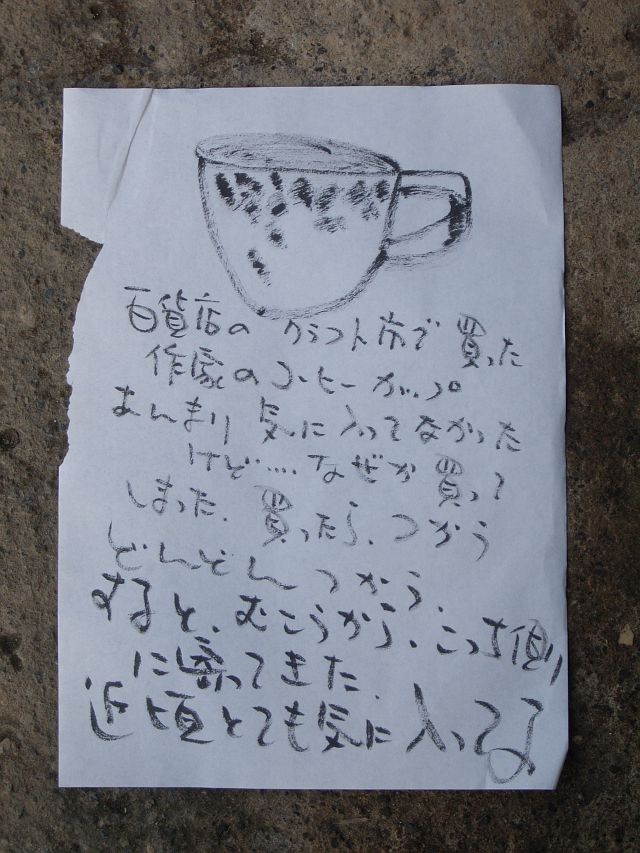 百貨店の クラフト市で 買った
作家の コーヒーカップ。
あんまり 気に入ってなかった
けど‥‥ なぜか 買って
しまった. 買ったら、つかう
どんどん つかう、
すると、むこうから、こっち側
に寄ってきた.
近頃とても気に入ってる